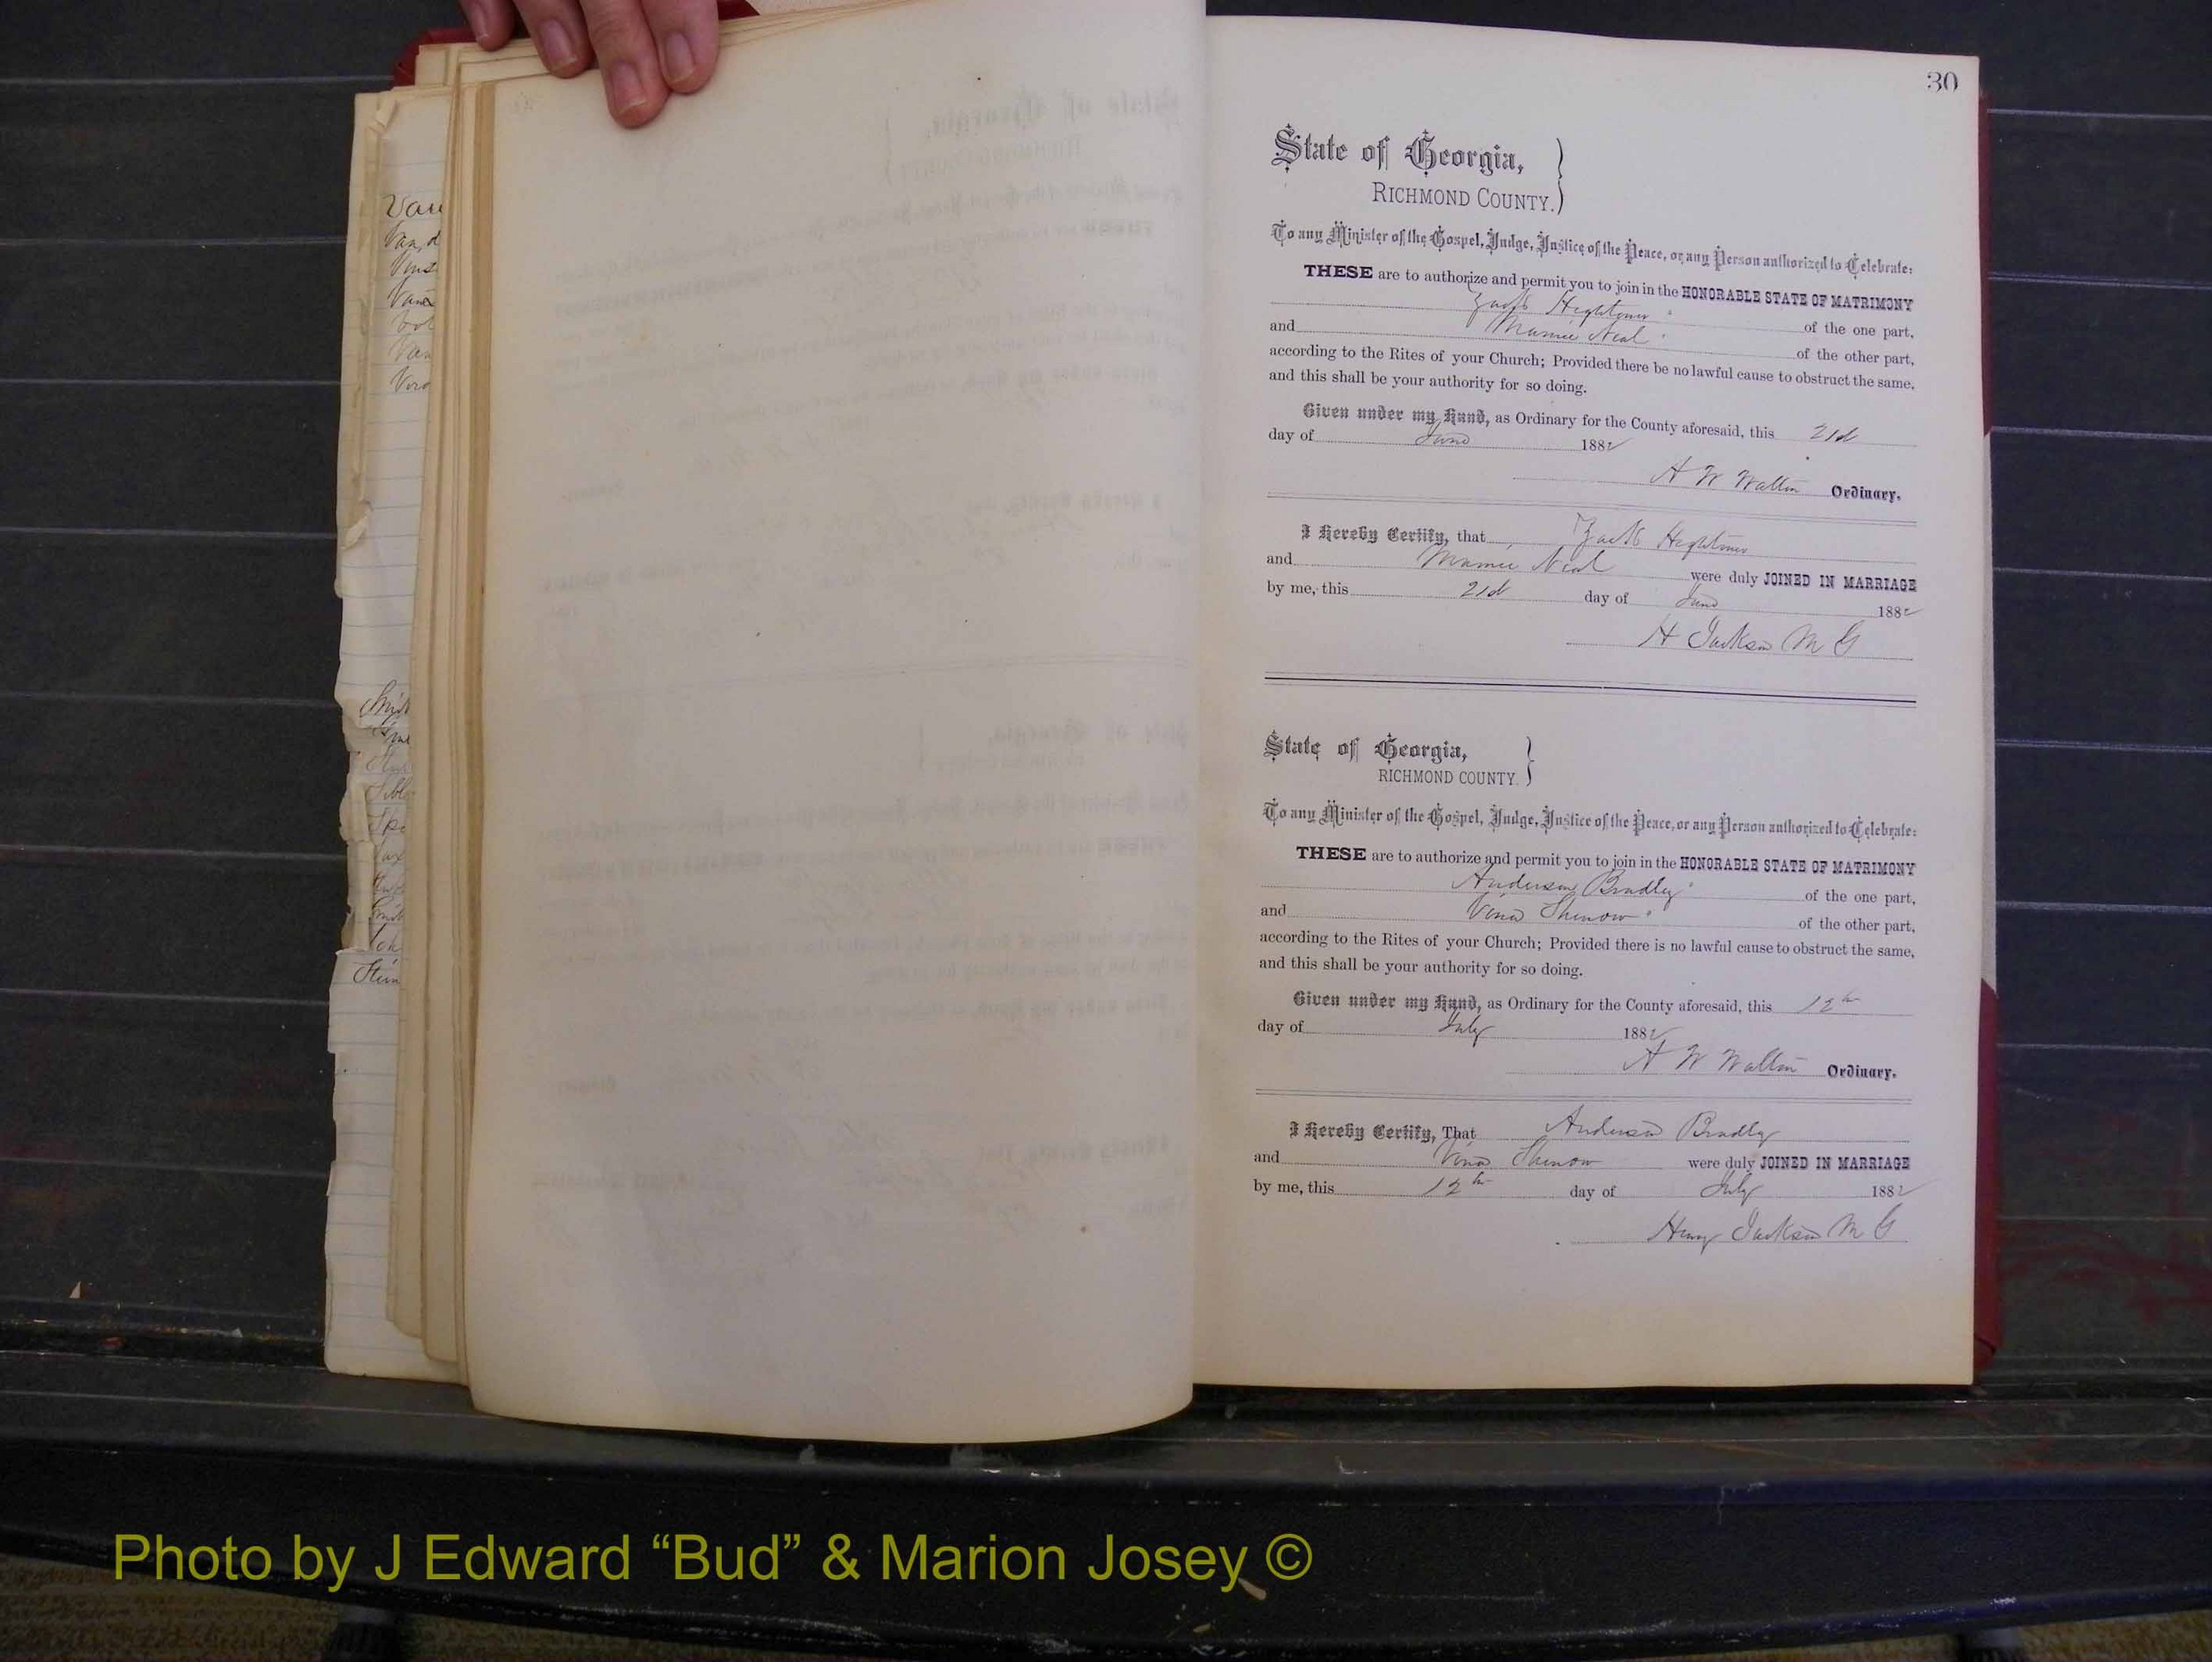 30
State of Georgia,
RICHMOND COUNTY.
To any Minister of the Gospel, Judge, Justice of the Peace, or any Person authorized to Celebrate:
THESE are to authorize and permit you to join in the HONORABLE STATE OF MATRIMONY
Zack Hightower of the one part,
and Mamie Neal of the other part,
according to the Rites of your Church; Provided there be no lawful cause to obstruct the same,
and this shall be your authority for so doing.
Given under my Hand, as Ordinary for the County aforesaid, this 21st
day of June 1882
A W Walton Ordinary.
I Hereby Certify, that Zack Hightower
and Mamie Neal were duly JOINED IN MARRIAGE
by me, this 21st day of June 1882
H Jackson M G
State of Georgia,
RICHMOND COUNTY.
To any Minister of the Gospel, Judge, Justice of the Peace, or any Person authorized to Celebrate:
THESE are to authorize and permit you to join in the HONORABLE STATE OF MATRIMONY
Anderson Bradley of the one part,
and Vina of the other part,
according to the Rites of your Church; Provided there is no lawful cause to obstruct the same,
and this shall be your authority for so doing.
Given under my Hand, as Ordinary for the County aforesaid, this 12th
day of July 1882
A W Walton Ordinary.
I Hereby Certify, That Anderson Bradley
and Vina were duly JOINED IN MARRIAGE
by me, this 12th day of July 1882
Henry Jackson M G
Photo by J Edward “Bud” & Marion Josey ©